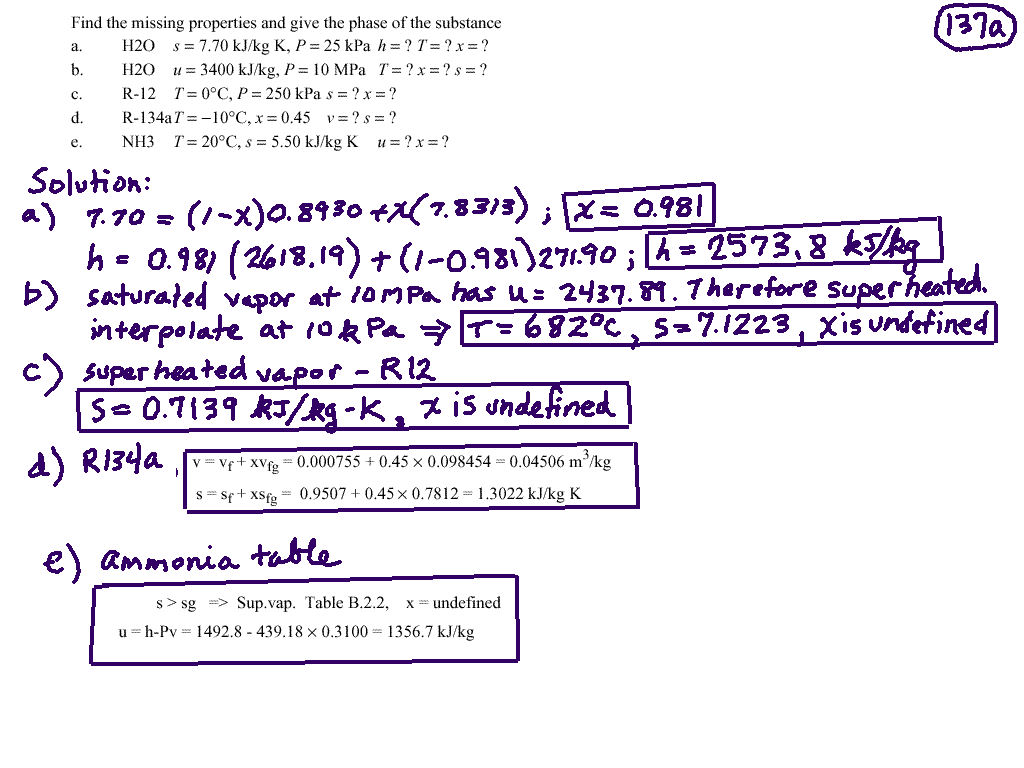 Find the missing properties and give the phase of the substance
137a
a. H2O s = 7.70 kJ/kg K, P = 25 kPa h = ? T = ? x = ?
b. H2O u = 3400 kJ/kg, P = 10 MPa T = ? x = ? s = ?
c. R-12 T = 0°C, P = 250 kPa s = ? x = ?
d. R-134a T = −10°C, x = 0.45 v = ? s = ?
e. NH3 T = 20°C, s = 5.50 kJ/kg K u = ? x = ?
Solution:
a) 7.70 = (1-x)0.8930 + x(7.8313) ; x = 0.981
h = 0.981 (2618.19) + (1-0.981)271.90 ; h = 2573.8 kJ/kg
b) saturated vapor at 10 MPa has u = 2437.89. Therefore superheated.
interpolate at 10 kPa ⇒ T = 682°C, s = 7.1223, x is undefined
c) superheated vapor - R12
S = 0.7139 kJ/kg-K, x is undefined
d) R134a, v = vf + xvfg = 0.000755 + 0.45 × 0.098454 = 0.04506 m³/kg
s = sf + xsfg = 0.9507 + 0.45 × 0.7812 = 1.3022 kJ/kg K
e) ammonia table
s > sg => Sup.vap. Table B.2.2, x = undefined
u = h-Pv = 1492.8 - 439.18 × 0.3100 = 1356.7 kJ/kg